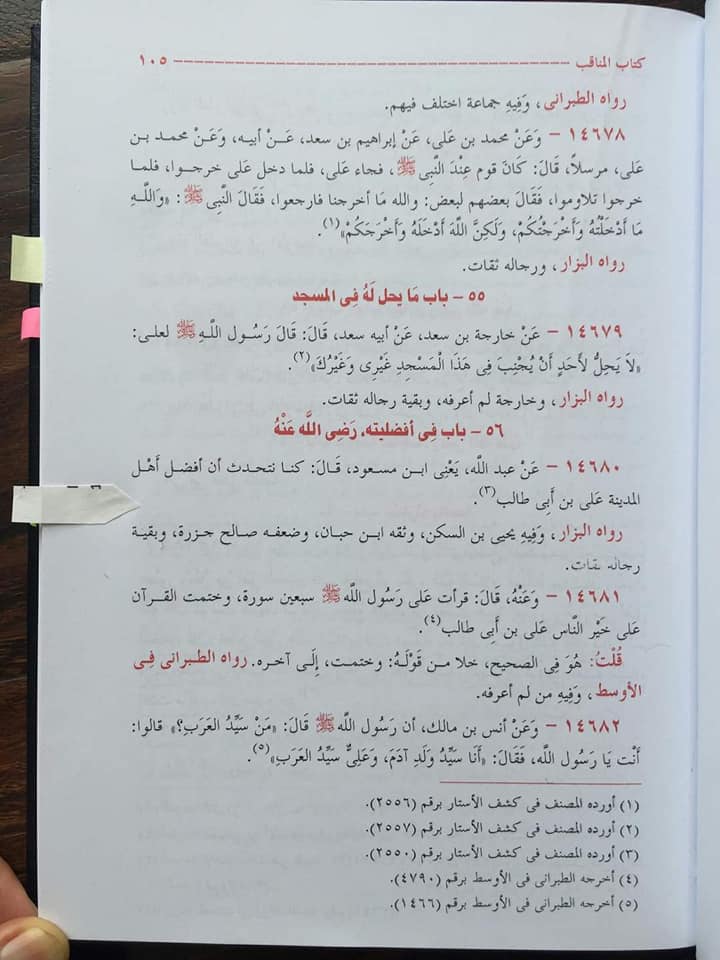 كتاب المناقب ------------------------------------------------ ١٠٥
رواه الطبرانى، وَفِيهِ جماعة اختلف فيهم.
١٤٦٧٨ - وَعَنْ محمد بن عَلى، عَنْ إبراهيم بن سعد، عَنْ أبيه، وَعَنْ محمد بن
عَلى، مرسلاً، قَالَ: كَانَ قوم عِنْدَ النَّبِى ﷺ، فجاء عَلى، فلما دخل عَلى خرجوا، فلما
خرجوا تلاوموا، فَقَالَ بعضهم لبعض: والله مَا أخرجنا فارجعوا، فَقَالَ النَّبِى ﷺ: «وَاللَّهِ
مَا أَدْخَلْتُهُ وَأَخْرَجْتُكُمْ، وَلَكِنَّ اللهَ أَدْخَلَهُ وَأَخْرَجَكُمْ»(١).
رواه البزار، ورجاله ثقات.
٥٥ - باب مَا يحل لَهُ فِى المسجد
١٤٦٧٩ - عَنْ خارجة بن سعد، عَنْ أبيه سعد، قَالَ: قَالَ رَسُول اللَّهِ ﷺ لعلى:
«لاَ يَحِلُّ لأَحَدٍ أَنْ يُجْنِبَ فِى هَذَا الْمَسْجِدِ غَيْرِى وَغَيْرُكَ»(٢).
رواه البزار، وخارجة لم أعرفه، وبقية رجاله ثقات.
٥٦ - باب فِى أفضليته، رَضِى اللَّه عَنْهُ
١٤٦٨٠ - عَنْ عبد الله، يَعْنِى ابن مسعود، قَالَ: كنا نتحدث أن أفضل أَهْل
المدينة عَلى بن أَبِى طالب(٣).
رواه البزار، وَفِيهِ يحيى بن السكن، وثقه ابن حبان، وضعفه صالح جزرة، وبقية
رجاله ثقات.
١٤٦٨١ - وَعَنْهُ، قَالَ: قرأت عَلى رَسُول الله ﷺ سبعين سورة، وختمت القرآن
عَلى خَيْر النَّاس عَلى بن أَبِى طالب(٤).
قُلْتُ: هُوَ فِى الصحيح، خلا من قَوْلَهُ: وختمت، إِلَى آخره. رواه الطبرانى فِى
الأوسط، وَفِيهِ من لم أعرفه.
١٤٦٨٢ - وَعَنْ أنس بن مالك، أن رَسُول الله ﷺ قَالَ: «مَنْ سَيِّدُ العَرَبِ؟» قالوا:
أَنْت يَا رَسُول الله، فَقَالَ: «أَنَا سَيِّدُ وَلَدِ آدَمَ، وَعَلِىٌّ سَيِّدُ العَرَبِ»(٥).
(١) أورده المصنف فى كشف الأستار برقم (٢٥٥٦).
(٢) أورده المصنف فى كشف الأستار برقم (٢٥٥٧).
(٣) أورده المصنف فى كشف الأستار برقم (٢٥٥٠).
(٤) أخرجه الطبرانى فى الأوسط برقم (٤٧٩٠).
(٥) أخرجه الطبرانى فى الأوسط برقم (١٤٦٦).